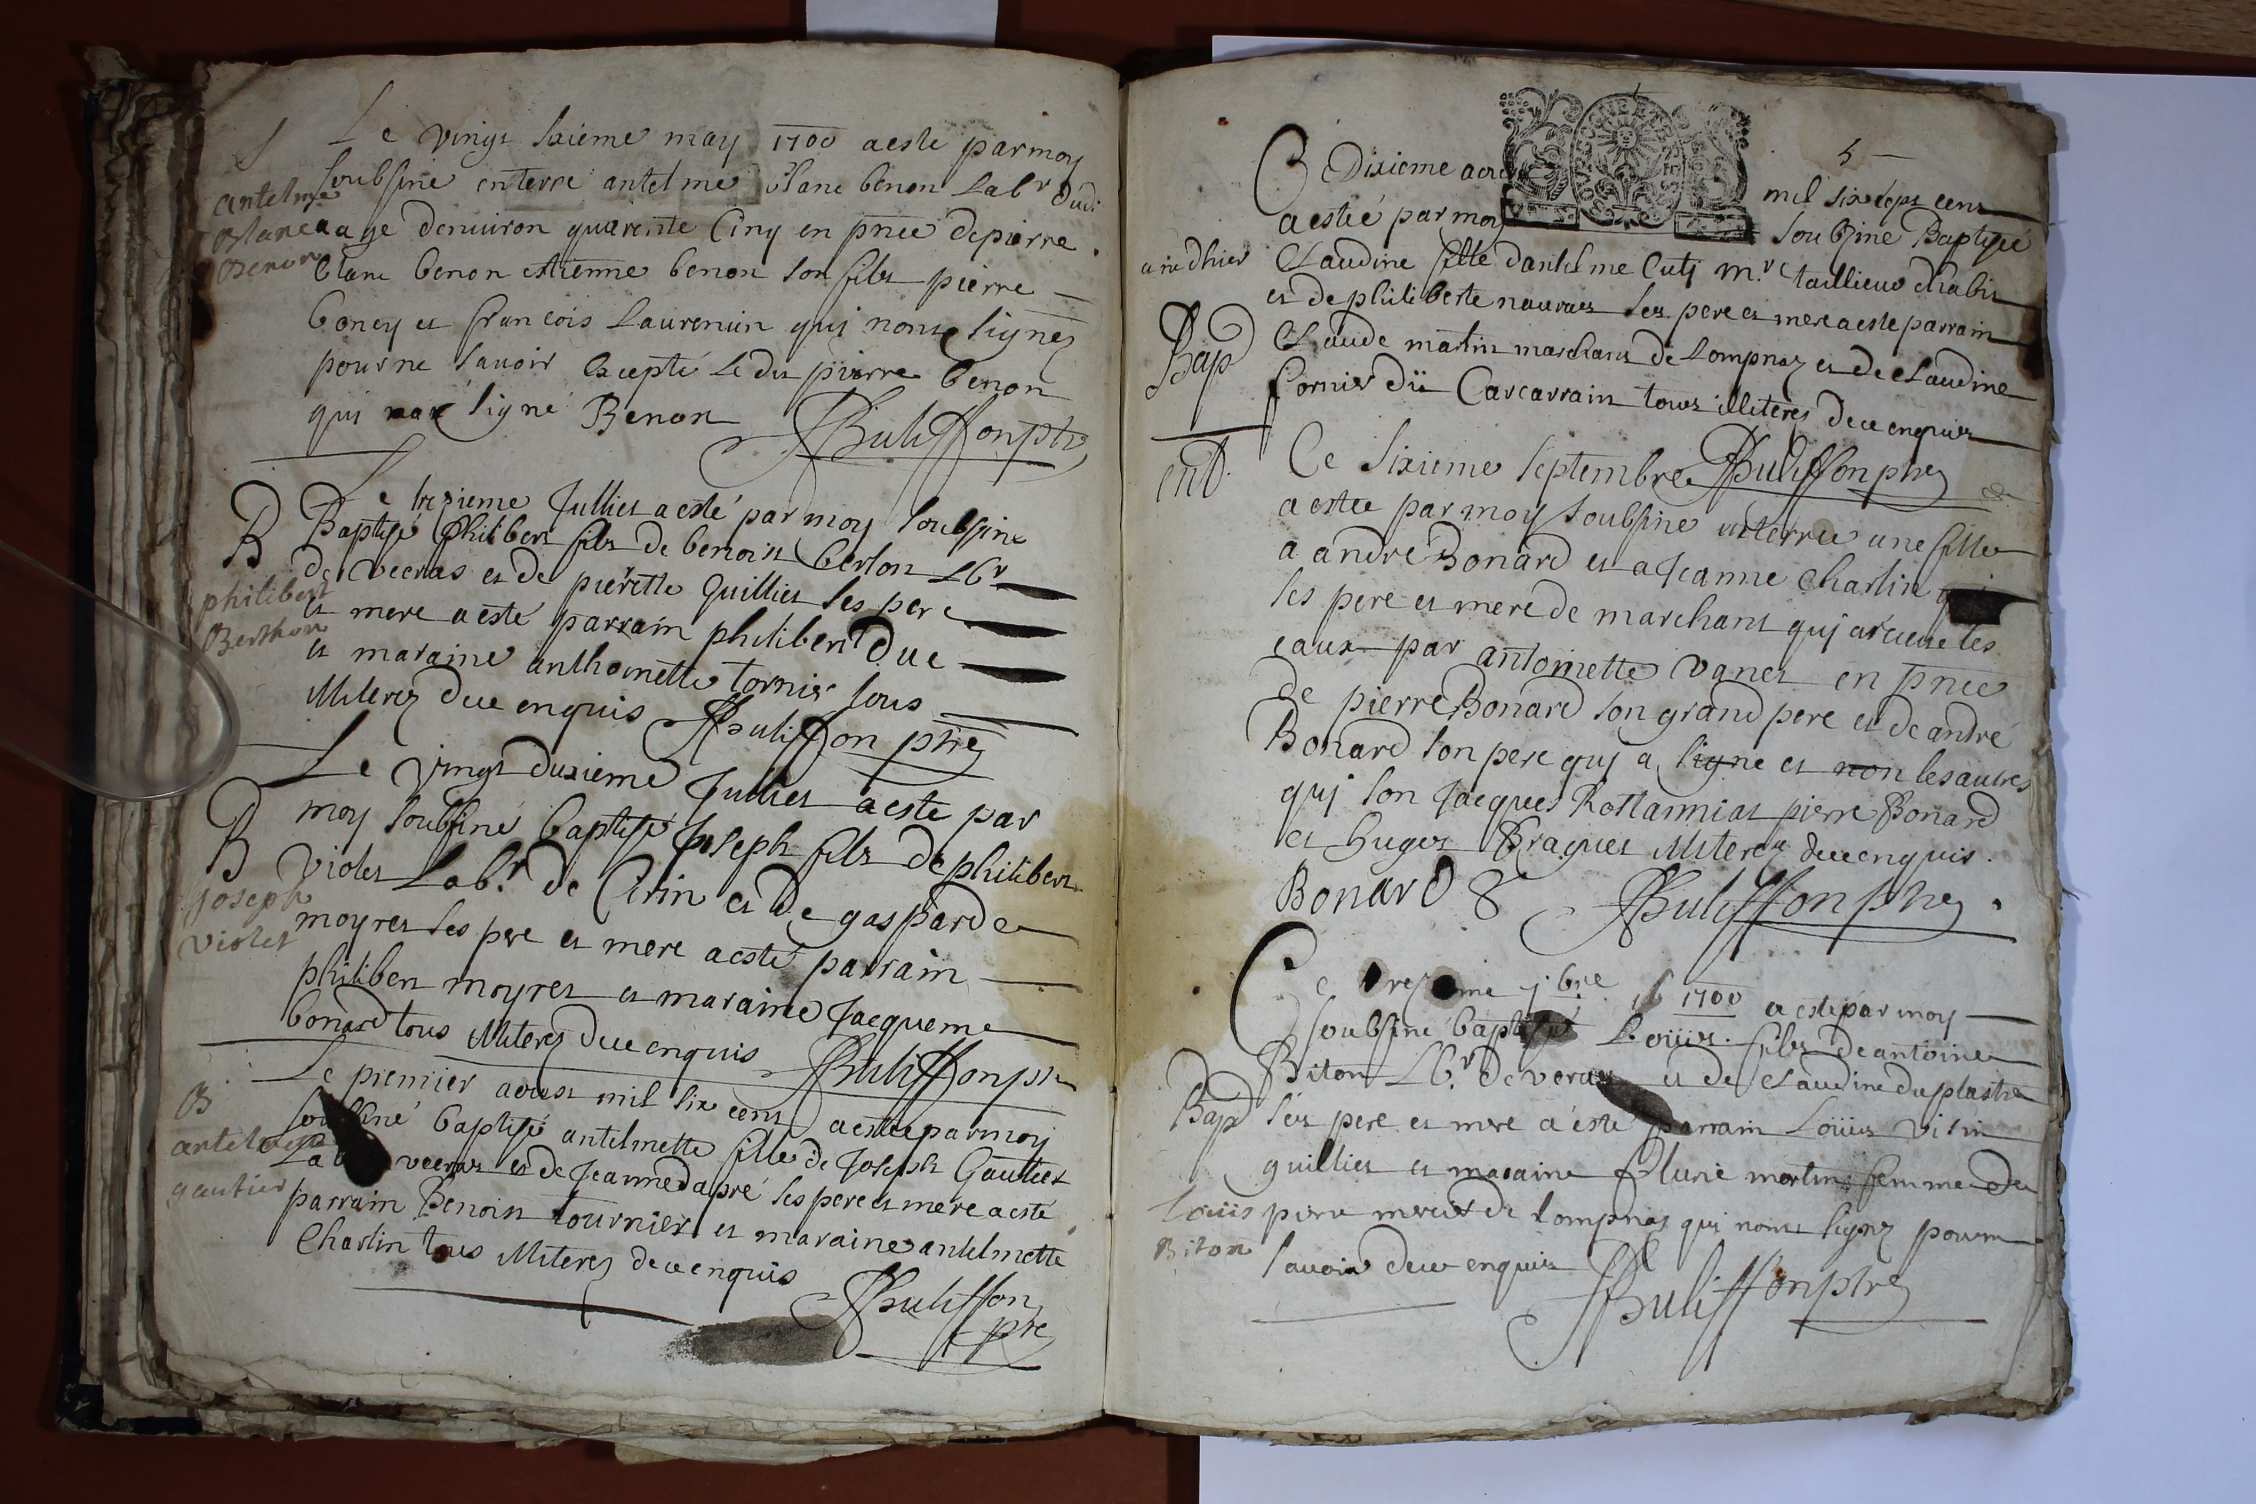 Le vingt sixieme may 1700 a este par moy
soubsiné enterré antelme blanc benon Labr dudi
antelme
Blanc
Benon
aage denviron quarente Cinq en pnce de pierre
blanc benon etienne benon son filz pierre
boney et francois Laurensin qui nont signez
pour ne savoir Excepté Ledit pierre benon
qui a signé Benon
JBulliffon ptre
Le trezieme Julliet a esté par moy soubsiné
B
philibert
Berthon
Baptisé Philibert filz de benoist berton Lbr
de veeras et de pierette Guilliet ses pere
et mere a esté parrain philibert Duc
et maraine anthoinette tornier tous
illiterez de ce enquis JBulliffon ptre
Le vingt duxieme Julliet a este par
moy soubsiné baptisé Joseph filz de philibert
B
Joseph
violet
violet Labr de Cerin et De gasparde
moyret ses pere et mere a esté parrain
philibert moyret et maraine Jacqueme
bonard tous illiterez de ce enquis JBulliffon ptre
Le premier aoust mil six cent a estee par moy
B
gautier
soubsiné baptisé antelmette fille de Joseph Gautier
veeras et de Jeanne dapré ses pere et mere a esté
parrain Benoist tournier et maraine antelmette
Charlin tous illiterez de ce enquis
JBulliffon
ptre
5
Ce Dixieme mil six sept cent
a estée par moy soubsiné Baptisée
Claudine fille dantelme Cuti mre taillieur dhabit
et de philiberte naurat ses pere et mere a este parrain
Bap
Claude martin marchant de Lompnaz et de Claudine
fornier dit Carcarrain tous illiteres de ce enquis
ent.
Ce sixieme septembre JBulliffon ptre
a estee par moy soubsiné enterree une fille
a andré Bonard et a Jeanne Charlin
ses pere et mere de marchant quj a receue les
eaux par antoinette vanet en pnce
de pierre Bonard son grand pere et de andré
Bonard son pere quj a signe et non les autres
quj son Jacques Rottanniat pierre Bonard
et huget Bragues illiterez de ce enquis.
Bonard
JBulliffon ptre
Ce 7bre 1700 a esté par moy
soubsiné baptisé Loüis filz de antoine
Biton Lbr. de veras et de Claudine duplastre
Bap
ses pere et mere a este parrain Loüis visin
guilliet et maraine Cluné martin femme de
Louis
Biton
pierre mercier de Lompnas qui nont signez pour ne
savoir de ce enquis
JBulliffon ptre